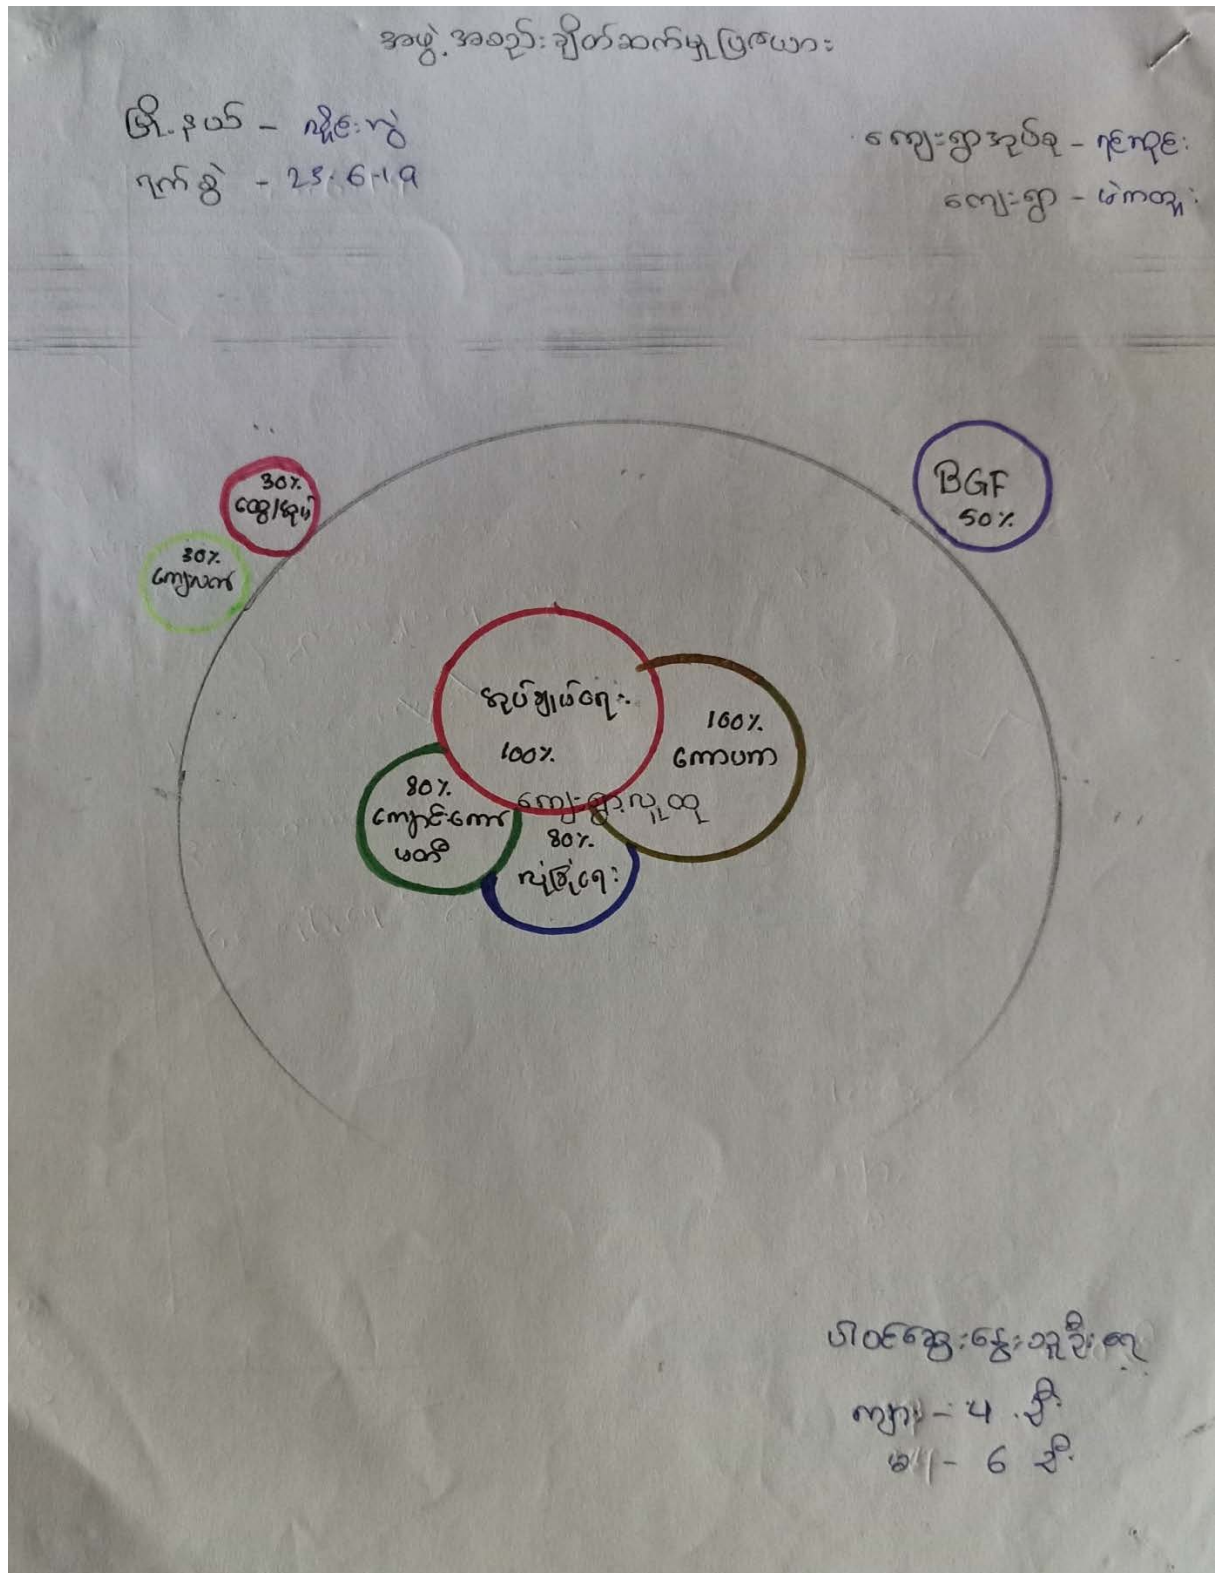 အဖွဲ့အစည်းချိတ်ဆက်မှုပြဇယား
မြို့နယ် - လှိုင်းဘွဲ
ရက်စွဲ - 25.6.19
ကျေးရွာအုပ်စု -
ကျေးရွာ -
30%
ထွေ/အုပ်
30%
ကျေးလက်
BGF
50%
အုပ်ချုပ်ရေး
100%
100%
ကောပကာ
80%
ကျောင်းကော်
မတီ
ကျေးရွာလူထု
80%
လုံခြုံရေး
ပါဝင်ဆွေးနွေးသူဦးရေ
ကျား - 4 ဦး
မ - 6 ဦး